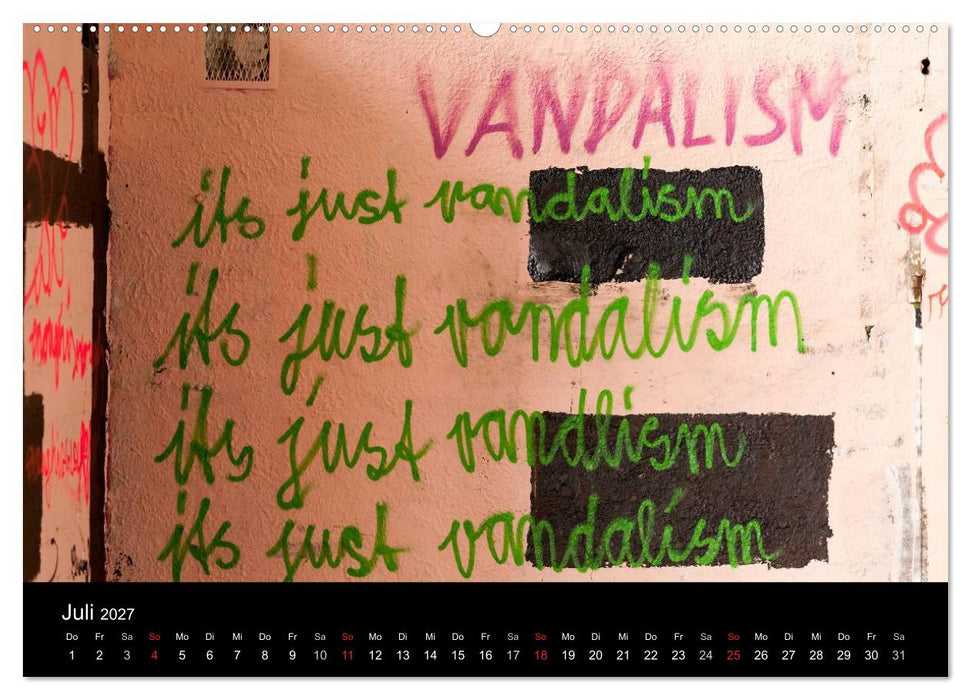 VANDALISM
its just vandalism
its just vandalism
its just vandlism
its just vandalism
Juli 2027
Do Fr Sa So Mo Di Mi Do Fr Sa So Mo Di Mi Do Fr Sa So Mo Di Mi Do Fr Sa So Mo Di Mi Do Fr Sa
1 2 3 4 5 6 7 8 9 10 11 12 13 14 15 16 17 18 19 20 21 22 23 24 25 26 27 28 29 30 31